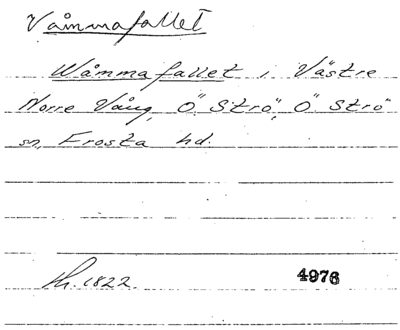 Våmmafallet
Wåmmafallet i Västre
Norre Vång, Ö. Strö, Ö. Strö
sn, Frosta hd.
Sk. 1822. 4976